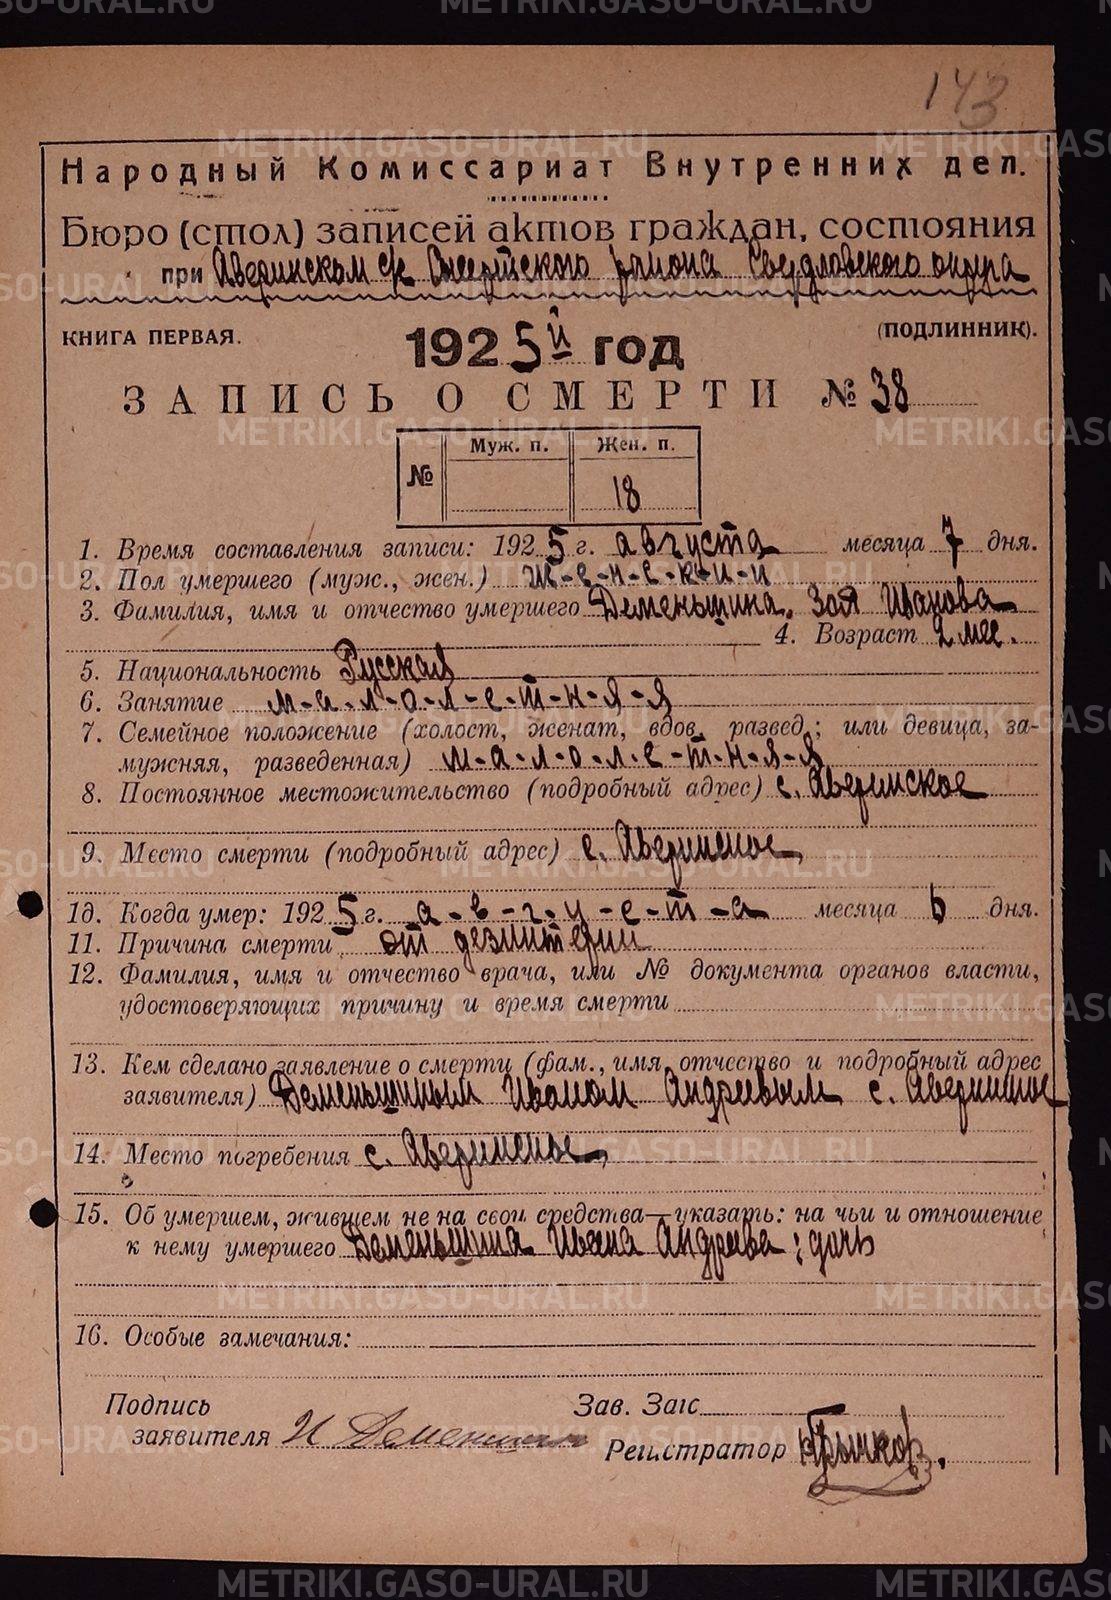 143
Народный Комиссариат Внутренних дел.
Бюро (стол) записей актов граждан, состояния
при Аверинском с/с Сысертского района Свердловского округа
КНИГА ПЕРВАЯ. 1925й год (ПОДЛИННИК).
ЗАПИСЬ О СМЕРТИ № 38
№ Муж. п. Жен. п.
18
1. Время составления записи: 1925 г. августа месяца 7 дня.
2. Пол умершего (муж., жен.) ж-е-н-с-к-и-й
3. Фамилия, имя и отчество умершего Деменьшина, Зоя Иванова
4. Возраст 2 мес.
5. Национальность Русская
6. Занятие м-а-л-о-л-е-т-н-я-я
7. Семейное положение (холост, женат, вдов, развед; или девица, за-
мужняя, разведенная) м-а-л-о-л-е-т-н-я-я
8. Постоянное местожительство (подробный адрес) с. Аверинское
9. Место смерти (подробный адрес) с. Аверинское
1д. Когда умер: 1925 г. а-в-г-у-с-т-а месяца 6 дня.
11. Причина смерти от дезинтерии
12. Фамилия, имя и отчество врача, или № документа органов власти,
удостоверяющих причину и время смерти
13. Кем сделано заявление о смерти (фам., имя, отчество и подробный адрес
заявителя) Деменьшиным Иваном Андреевым с. Аверинское
14. Место погребения с. Аверинское
15. Об умершем, жившем не на свои средства—указать: на чьи и отношение
к нему умершего Деменьшина Ивана Андреева; дочь
16. Особые замечания:
Подпись Зав. Загс
заявителя И Деменьшин Регистратор
METRIKI.GASO-URAL.RU